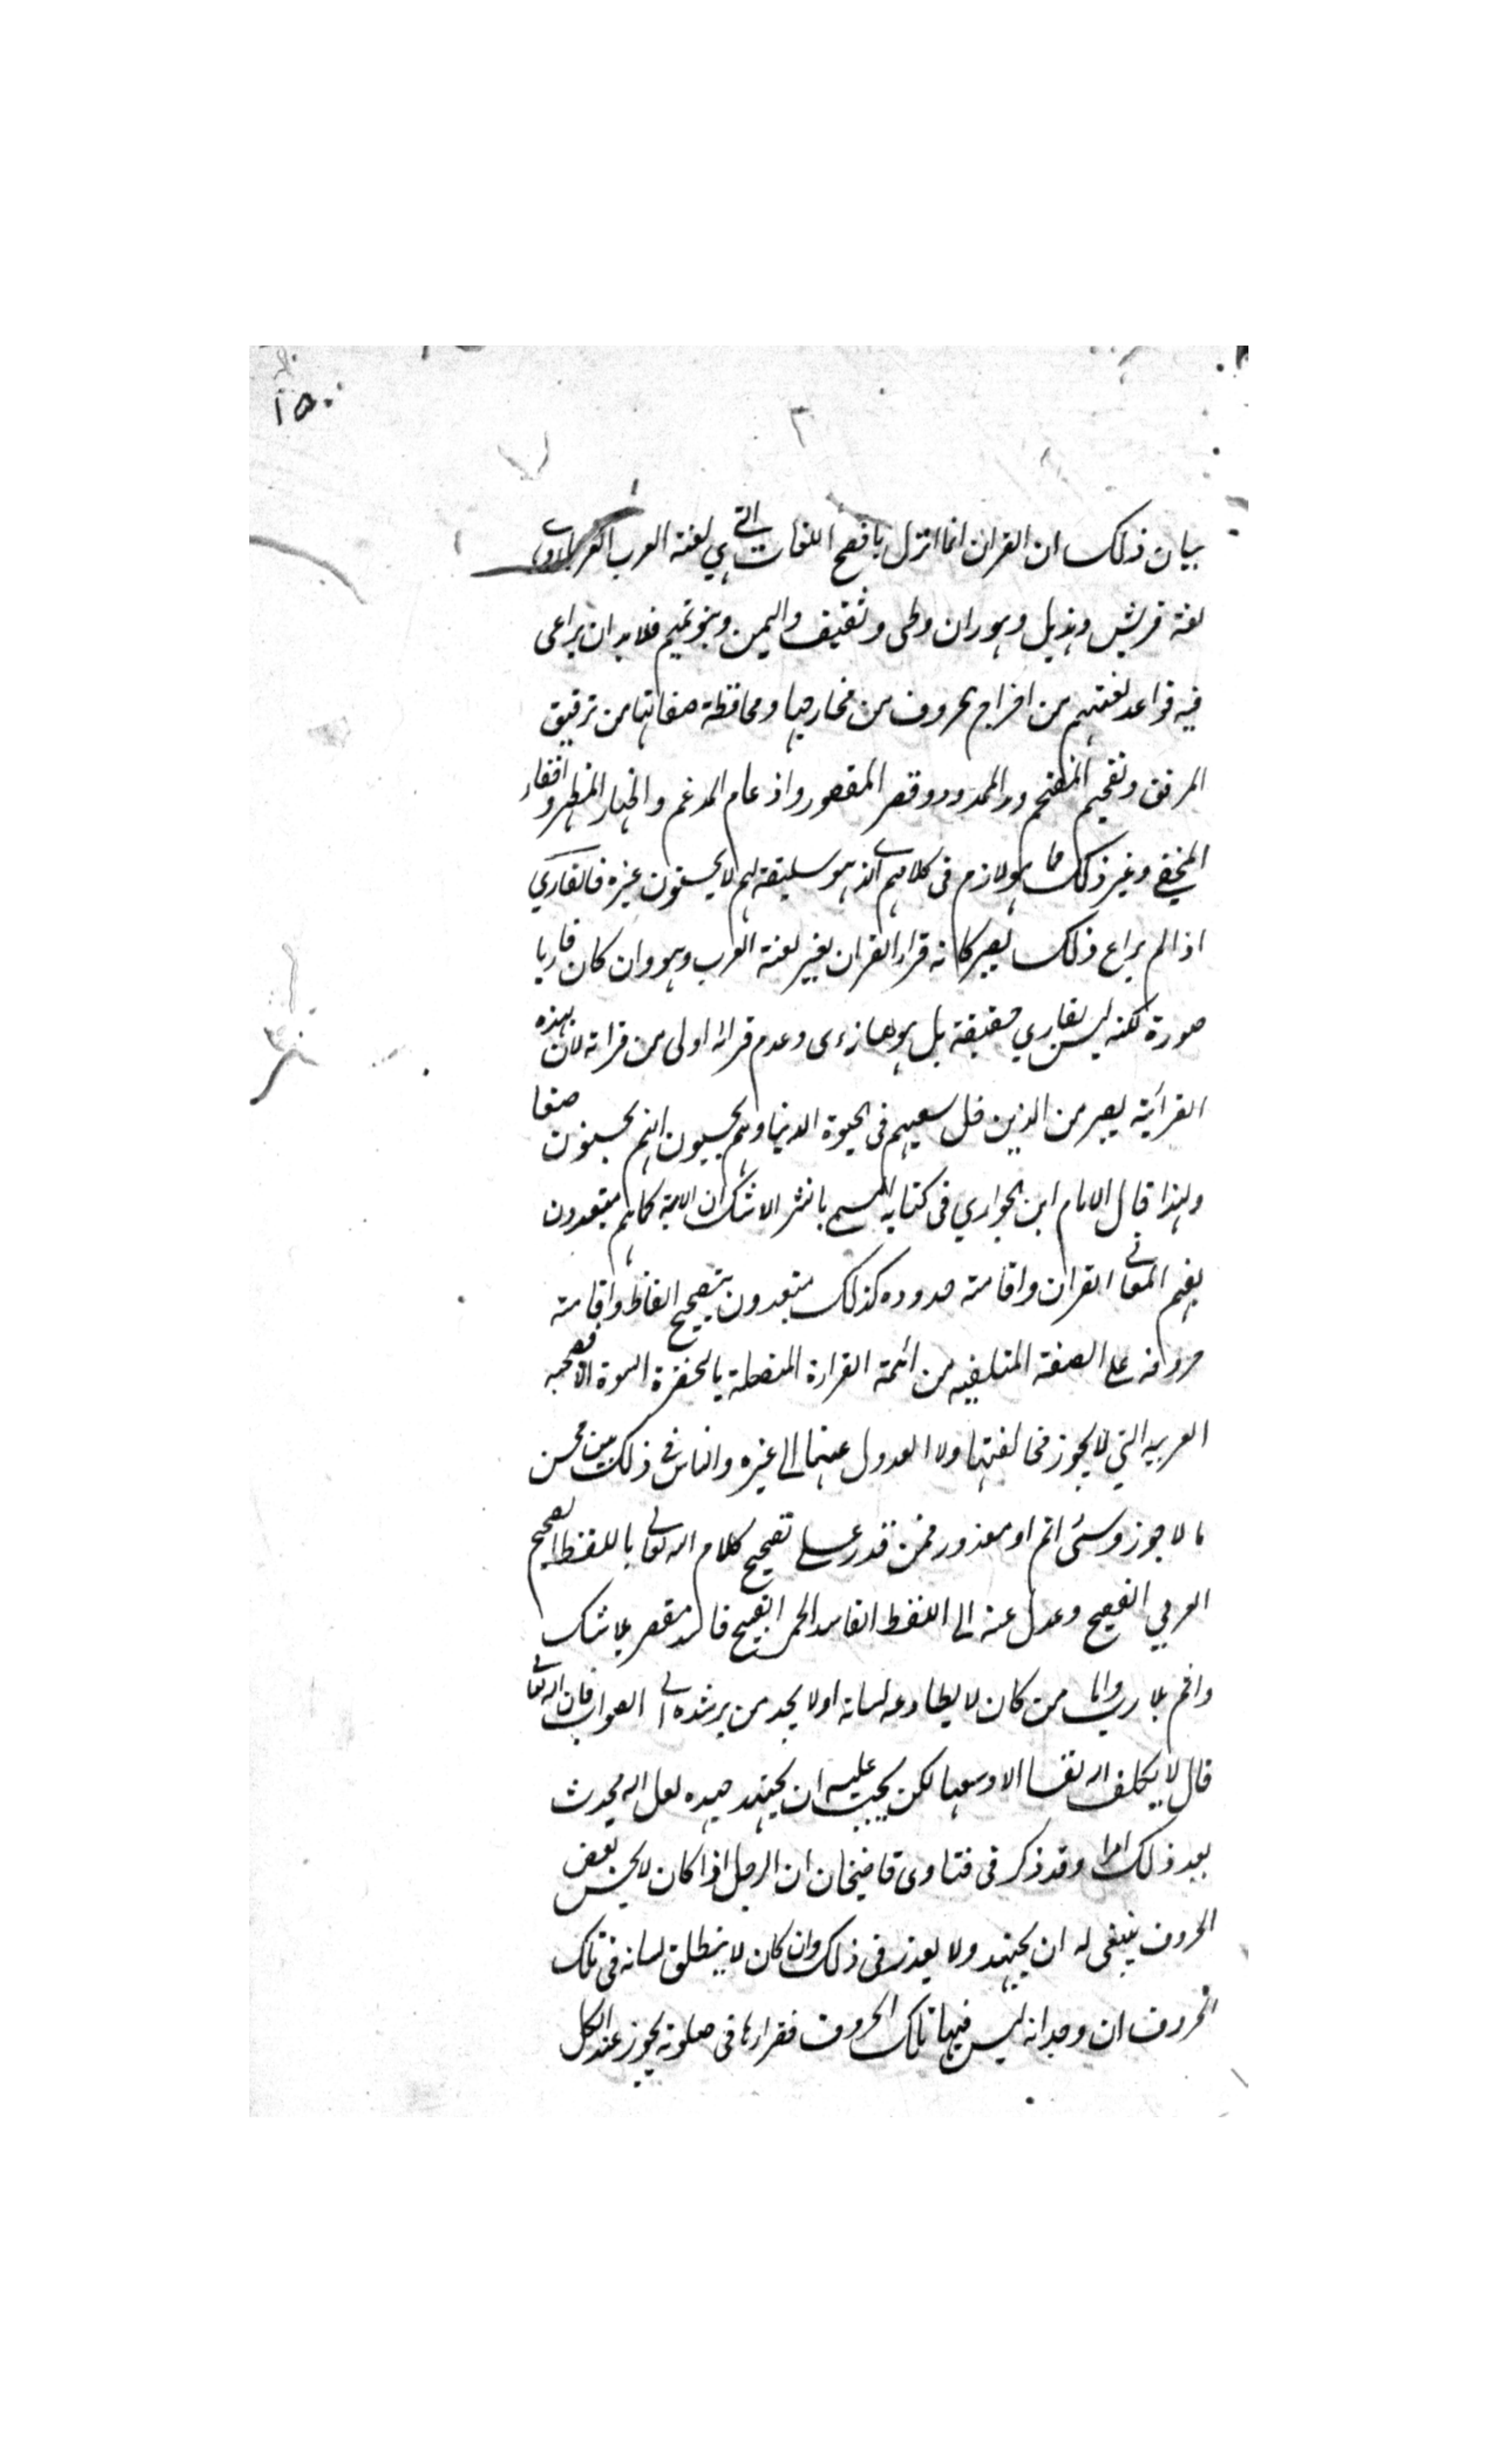 ١٥٠
٢
بيان ذلك ان القران انما انزل بافصح اللغات التى هي لغة العرب العرباء وهى
لغة قريش وهذيل وهوران وطى وثقيف واليمن وبنو تميم فلا بد ان يراعى
فيه قواعد لغتهم من اخراج الحروف من مخارجها ومحافظة صفاتها من ترقيق
المرقق وتفخيم المفخم ومد الممدود وقصر المقصور وادغام المدغم واظهار المظهر واخفاء
المخفي وغير ذلك مما هو لازم فى كلامهم الذى هو سليقة لهم لا يحسنون غيره فالقاري
اذا لم يراع ذلك يصير كانه قراء القران بغير لغة العرب وهو وان كان قاريا
صورة لكنه ليس بقاري حقيقة بل هو هازءى وعدم قراته اولى من قراته لان بهذه
القرائة يصير من الذين ضل سعيهم فى الحيوة الدنيا وهم يحسبون انهم يحسنون صنعا
ولهذا قال الامام ابن الجوزي فى كتابه المسمى بالنشر لا شك ان الامة كما هم متعبدون
بفهم المعانى القران واقامة حدوده كذلك متعبدون بتصحيح الفاظ واقامة
حروفه على الصفة المتلقيه من ائمة القراءة المتصلة بالحضرة النبوة الافصحيه
العربيه التي لا يجوز مخالفتها ولا العدول عنها الى غيره والناس فى ذلك بين محسن
ما لا جوز ومسئ اثم او معذور فمن قدر على تصحيح كلام الله تعالى باللفظ الصحيح
العربي الفصيح وعدل عنه الى اللفظ الفاسد العجمي القبيح فانه مقصر بلا شك
واثم بلا ريب واما من كان لا يطاوعه لسانه او لا يجد من يرشده الى الصواب فان الله تعالى
قال لا يكلف الله نفسا الا وسعها لكن يجب عليه ان يجتهد جهده لعل الله يحدث
بعد ذلك امرا وقد ذكر فى فتاوى قاضيخان ان الرجل اذا كان لا يحسن بعض
الحروف ينبغى له ان يجتهد ولا يعذر فى ذلك وان كان لا ينطلق لسانه فى تلك
الحروف ان وجد انه ليس فيها تلك الحروف فقراءها فى صلوته يجوز عند الكل